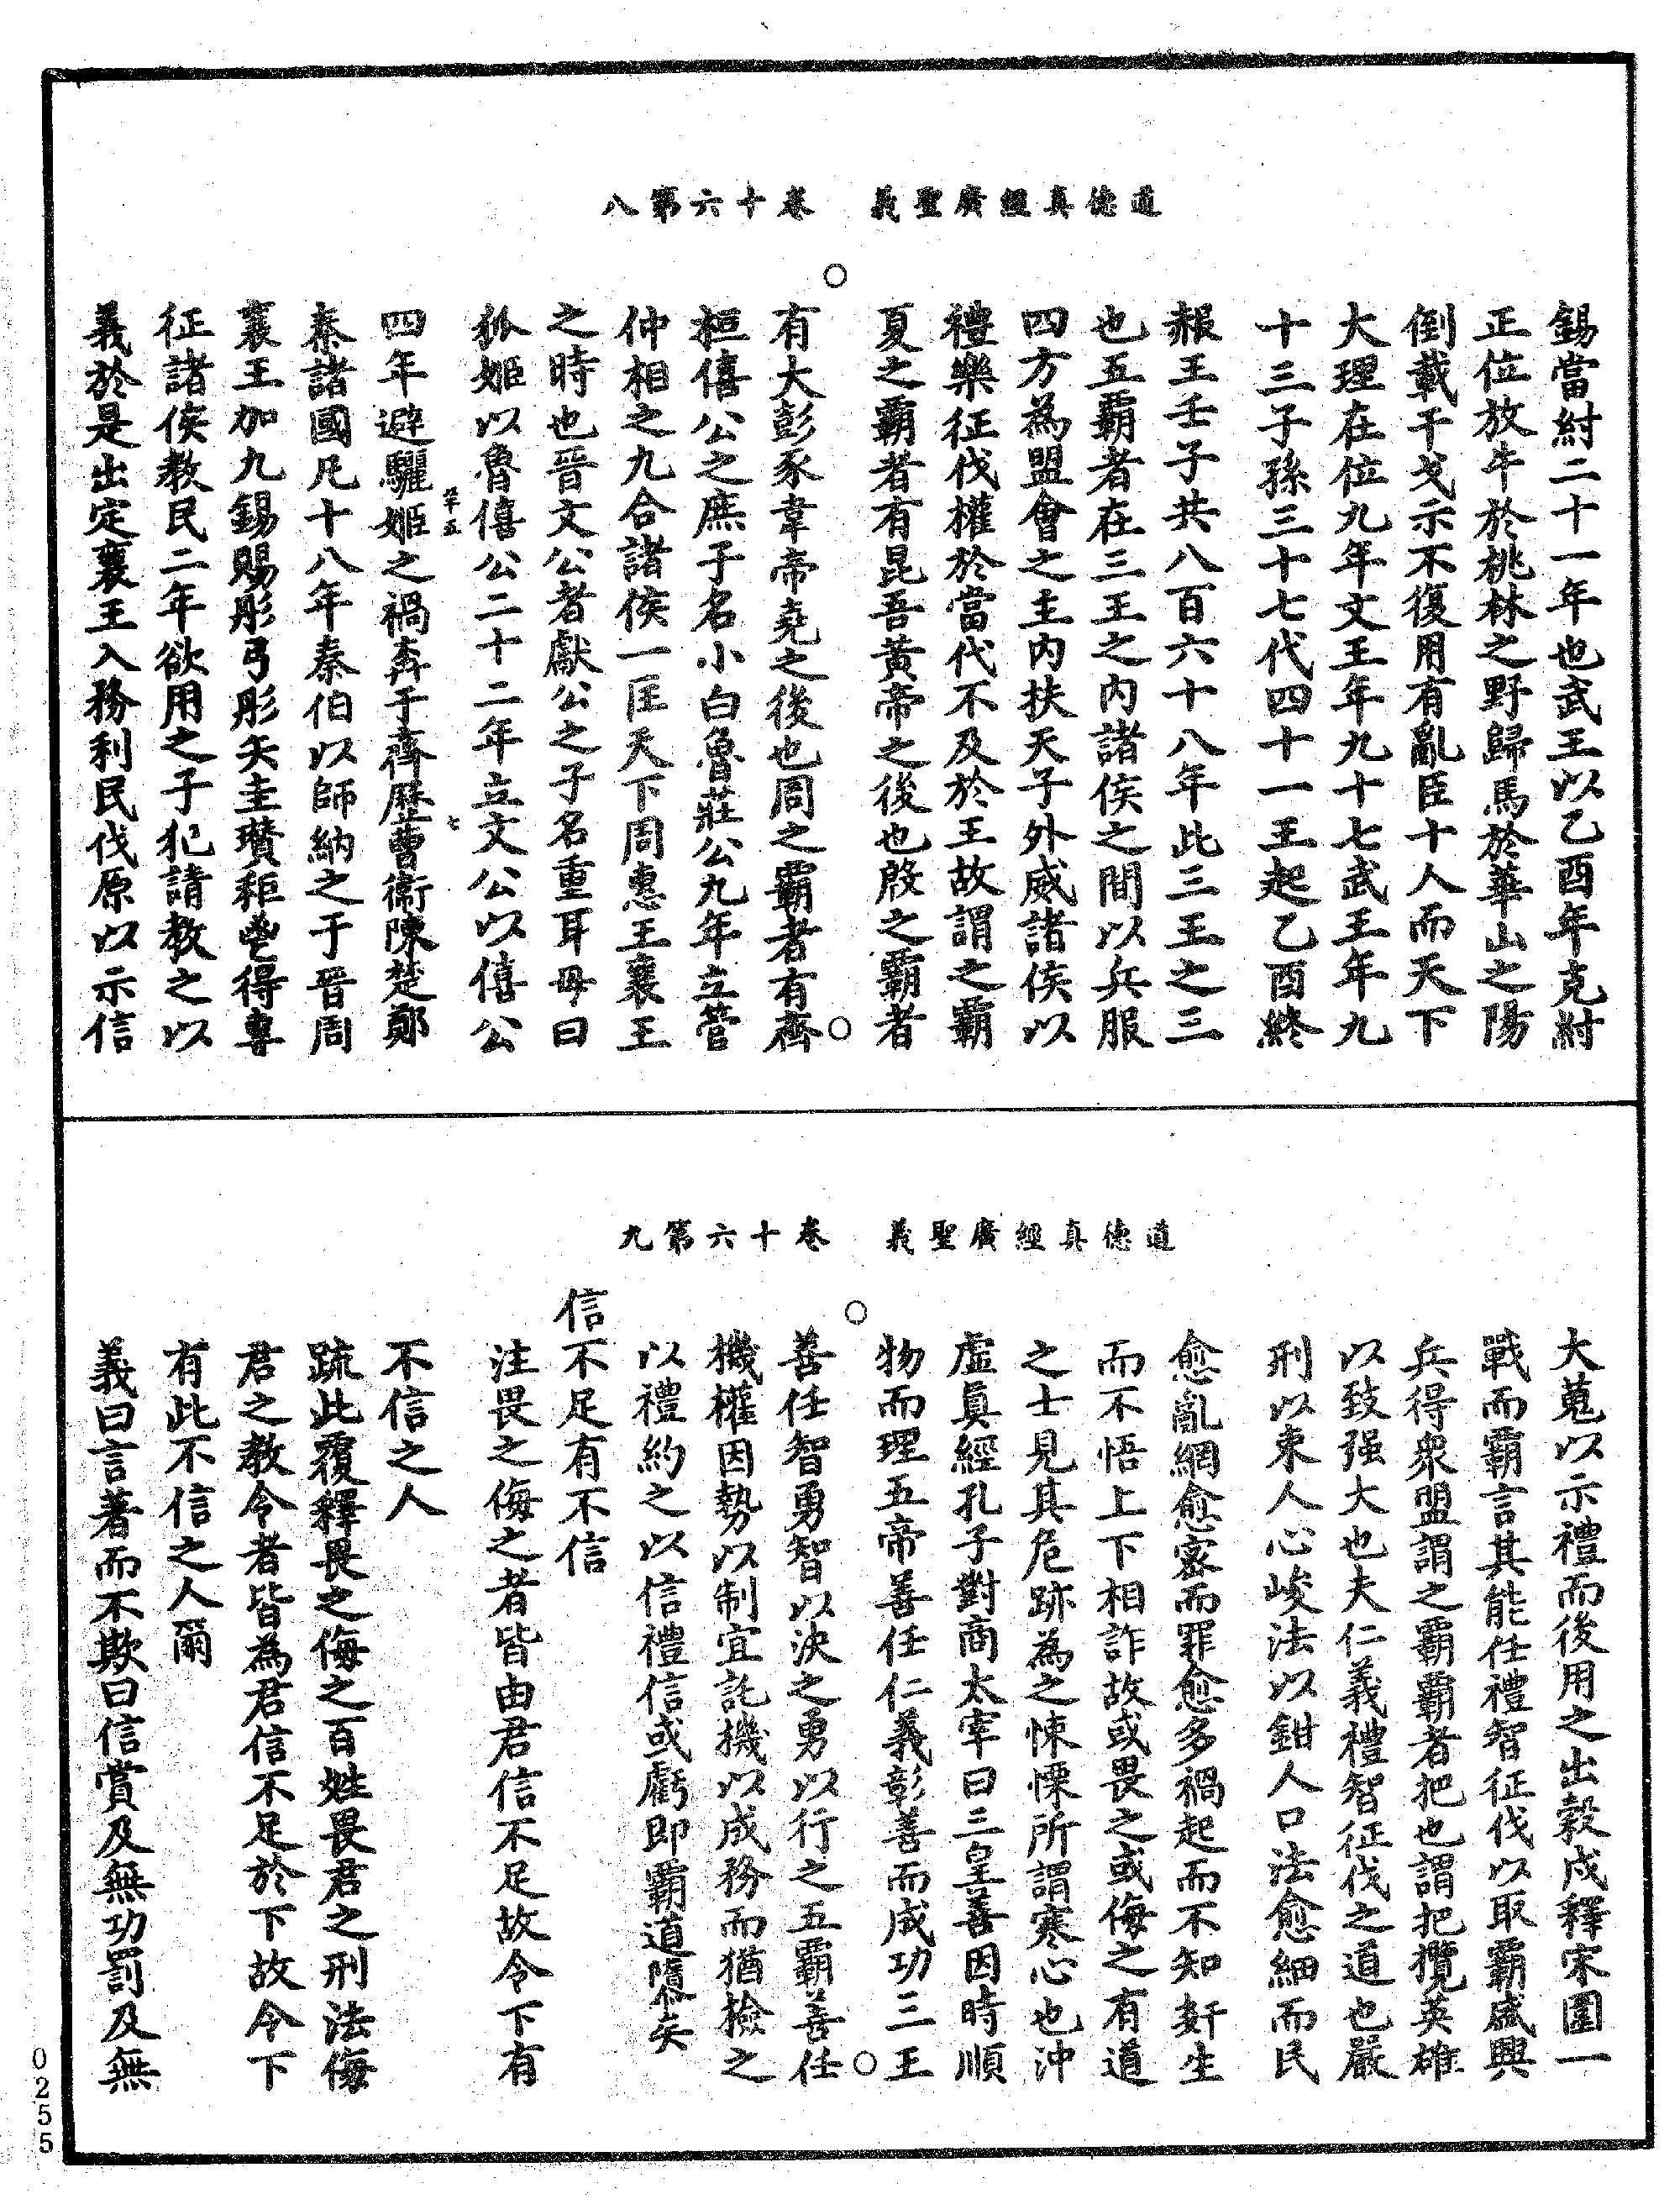 道德真經廣聖義　卷十六第八
錫當紂二十一年也武王以乙酉年克紂
正位放牛於桃林之野歸馬於華山之陽
倒載干戈示不復用有亂臣十人而天下
大理在位九年文王年九十七武王年九
十三子孫三十七代四十一王起乙酉終
赧王壬子共八百六十八年此三王之三
也五霸者在三王之内諸侯之間以兵服
四方為盟會之主内扶天子外威諸侯以
禮樂征伐權於當代不及於王故謂之霸
夏之霸者有昆吾黃帝之後也殷之霸者
有大彭豕韋帝堯之後也周之霸者有齊
桓僖公之庶子名小白魯莊公九年立管
仲相之九合諸侯一匡天下周惠王襄王
之時也晉文公者獻公之子名重耳母曰
狐姬以魯僖公二十二年立文公以僖公
四年避驪姬之禍奔于齊歷曹衞陳楚鄭
秦諸國凡十八年秦伯以師納之于晉周
襄王加九錫賜彤弓彤矢圭瓚秬鬯得專
征諸侯教民二年欲用之子犯請教之以
義於是出定襄王入務利民伐原以示信
道德真經廣聖義　卷十六第九
大蒐以示禮而後用之出穀戍釋宋圍一
戰而霸言其能任禮智征伐以取霸盛興
兵得衆盟謂之霸霸者把也謂把攬英雄
以致强大也夫仁義禮智征伐之道也嚴
刑以束人心峻法以鉗人口法愈細而民
愈亂網愈密而罪愈多禍起而不知姧生
而不悟上下相詐故或畏之或侮之有道
之士見其危跡為之悚慄所謂寒心也沖
虛真經孔子對商太宰曰三皇善因時順
物而理五帝善任仁義彰善而成功三王
善任智勇智以決之勇以行之五霸善任
機權因勢以制宜託機以成務而猶檢之
以禮約之以信禮信或虧即霸道隳矣
信不足有不信
注畏之侮之者皆由君信不足故令下有
不信之人
疏此覆釋畏之侮之百姓畏君之刑法侮
君之教令者皆為君信不足於下故令下
有此不信之人爾
義曰言著而不欺曰信賞及無功罰及無
0255